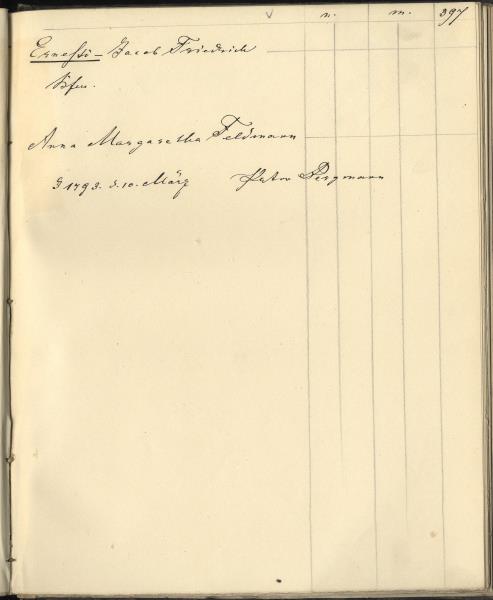 v. n. m. 397
Ernesti - Jacob Friedrich
Anna Margaretha Feldmann
1793. d. 10. März Peter Bergmann